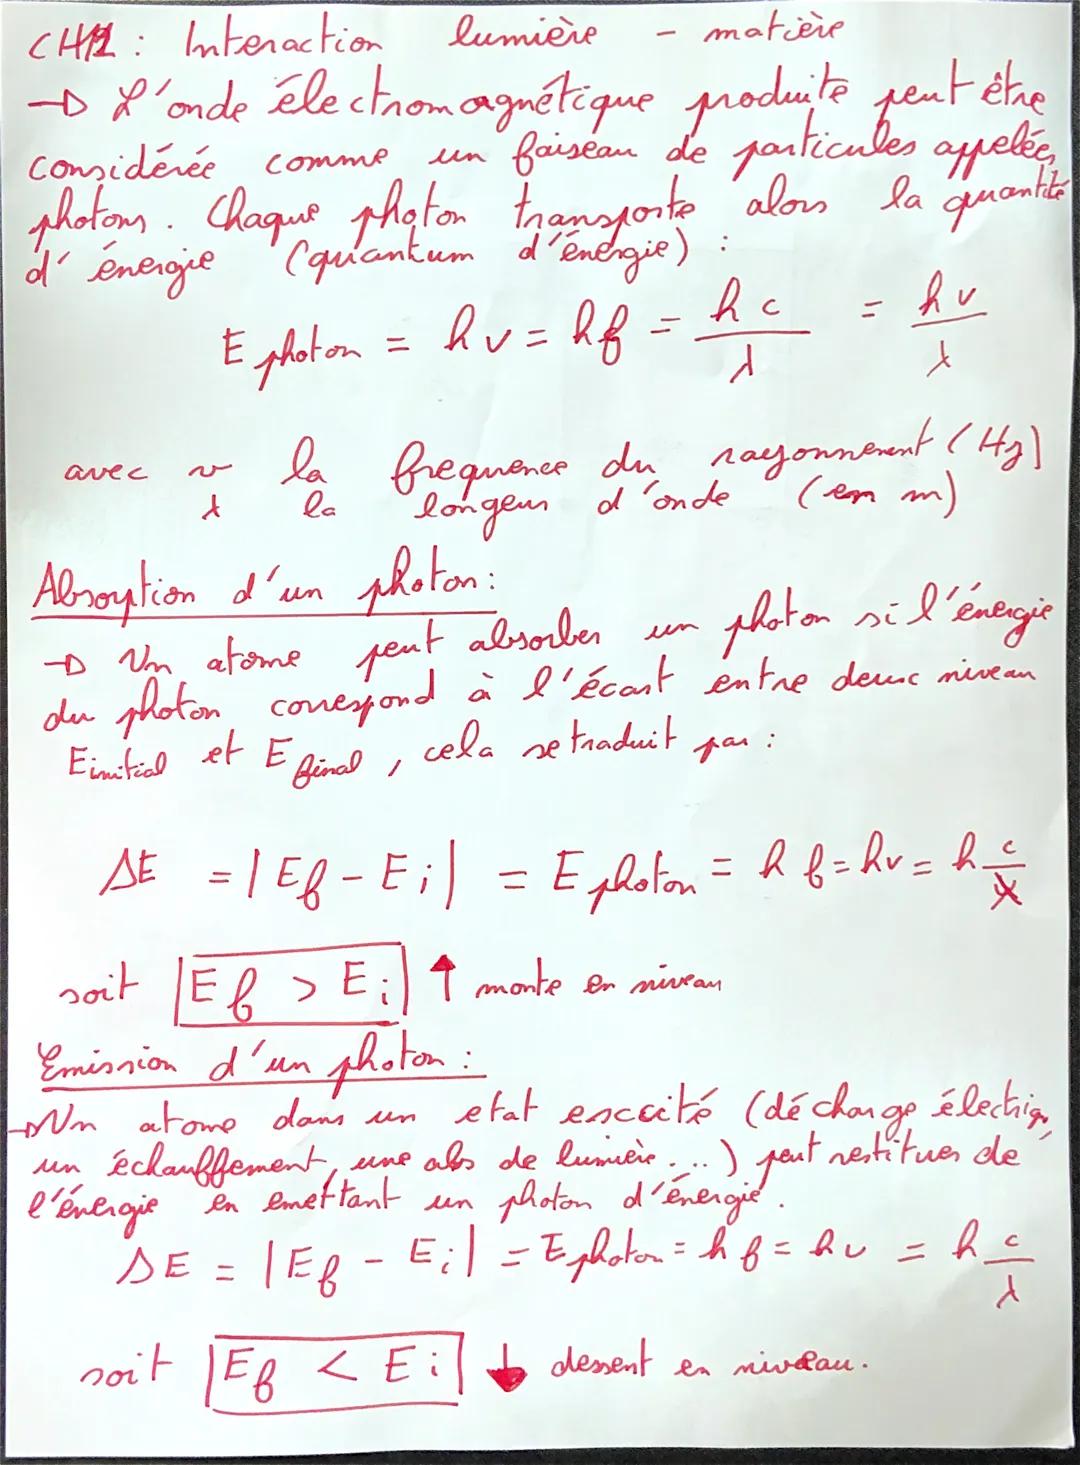 CH12 : Interaction lumière - matière
→ L'onde électromagnétique produite peut être
considérée comme un faiseau de particules appelées
photons. Chaque photon transporte alors la quantité
d'énergie (quantum d'énergie) :
E photon = hν = hf = hc/λ = hv/λ
avec ν la frequence du rayonnement (Hz)
λ la longeur d'onde (en m)
Absorption d'un photon :
→ Un atome peut absorber un photon si l'énergie
du photon correspond à l'écart entre deux niveau
E initial et E final, cela se traduit par :
ΔE = |Ef - Ei| = E photon = hf = hν = h c/λ
soit Ef > Ei ↑ monte en niveau
Emission d'un photon :
→ Un atome dans un etat excité (décharge électriq,
un échauffement, une abs de lumière...) peut restituer de
l'énergie en emettant un photon d'énergie.
ΔE = |Ef - Ei| = E photon = hf = hν = h c/λ
soit Ef < Ei ↓ dessent en niveau.